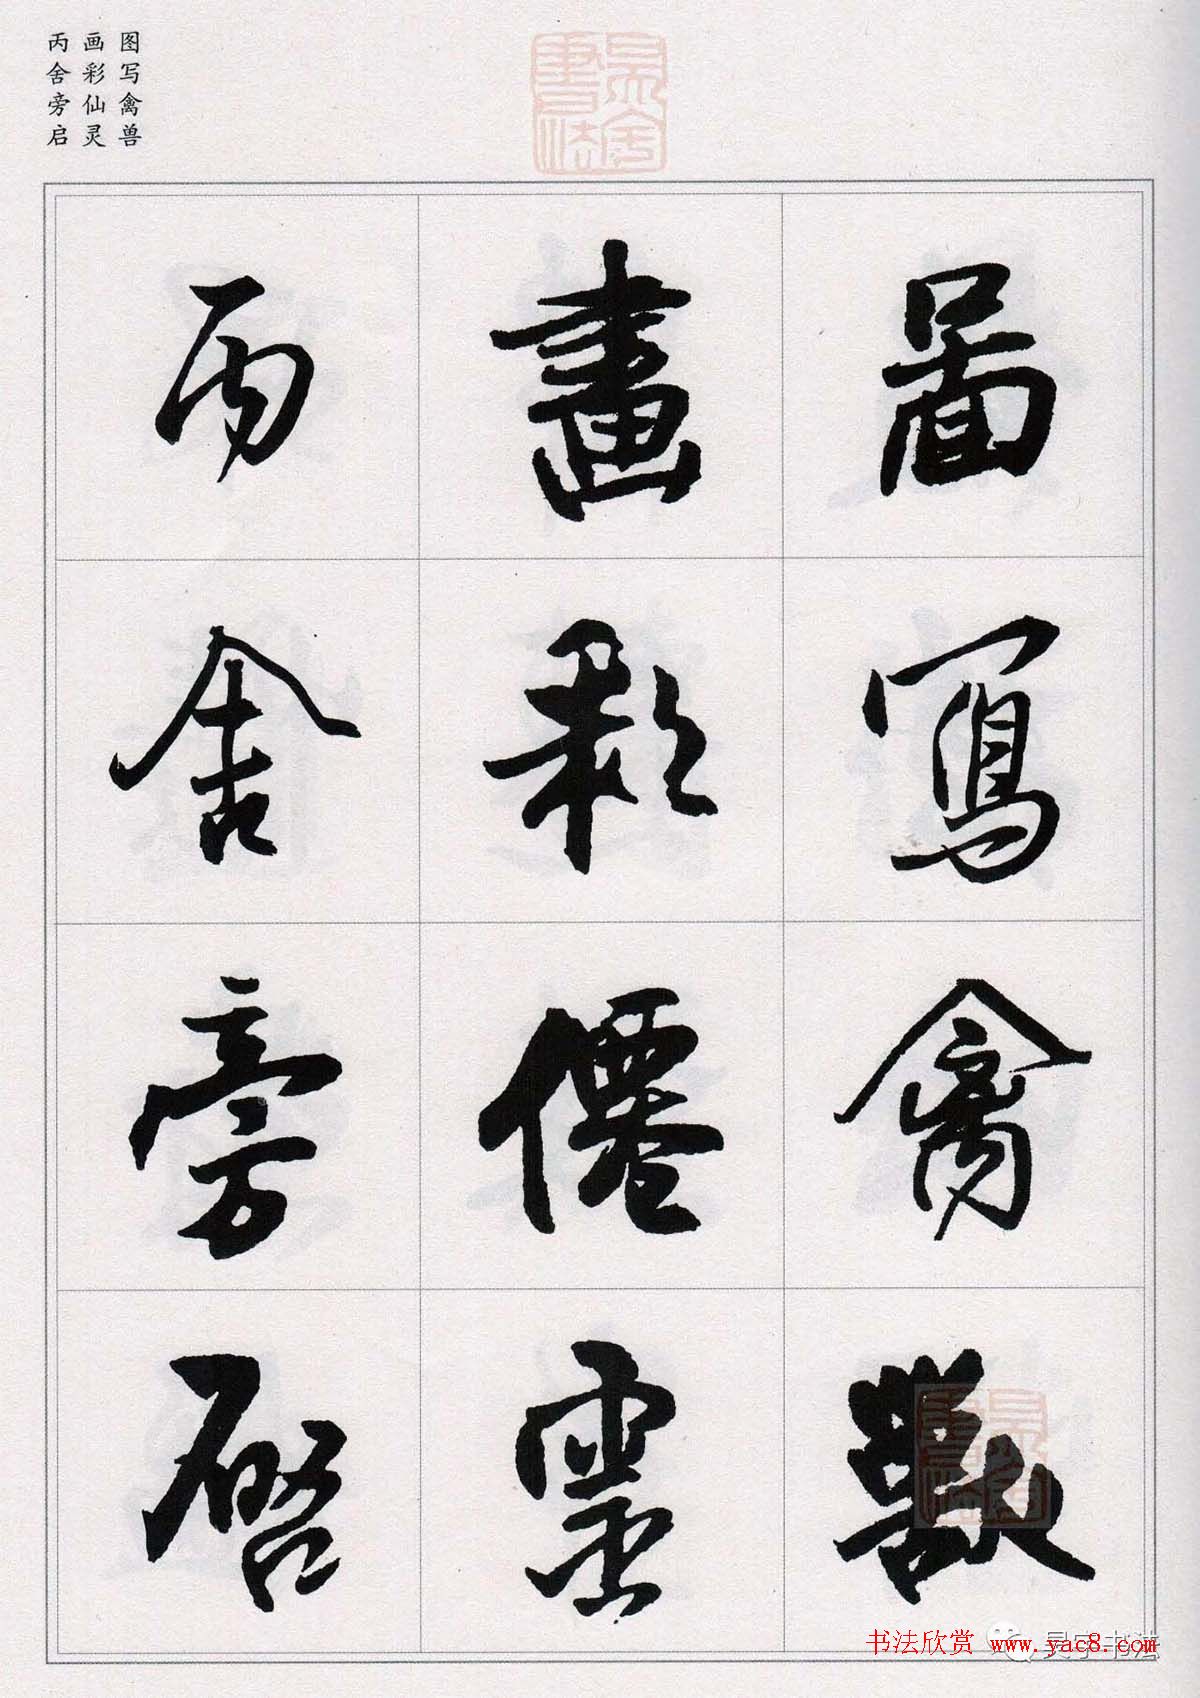 图写禽兽
画彩仙灵
丙舍旁启
圖寫禽獸
畫彩僊靈
丙舍旁啓
书法欣赏 www.yac8.com